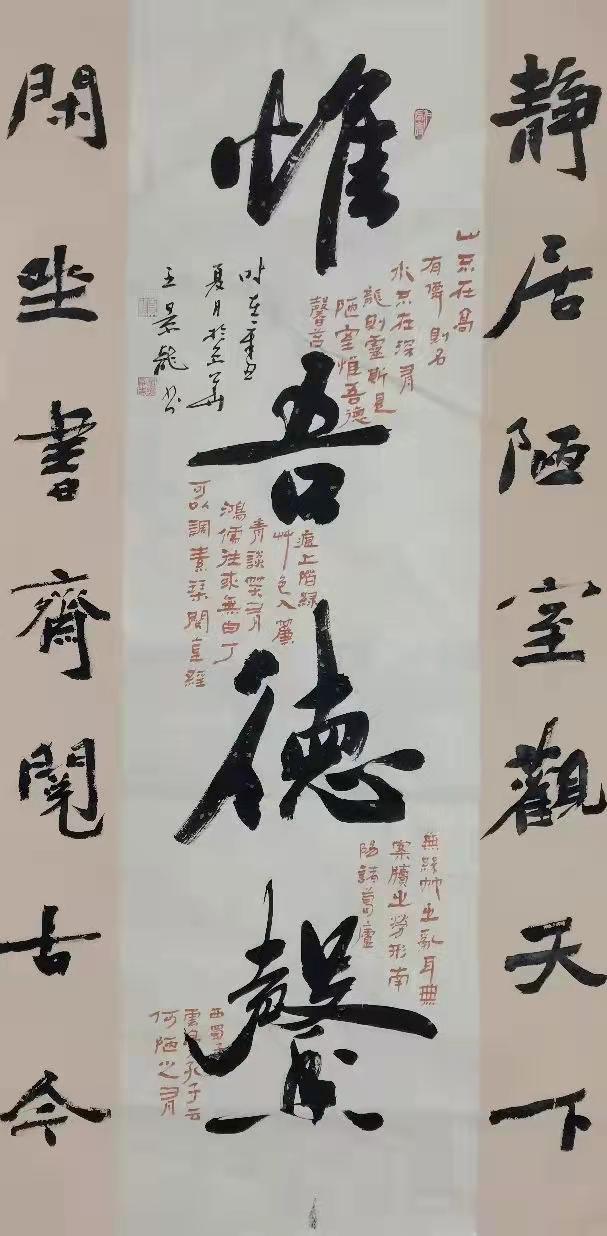 静居陋室觀天下
惟吾德馨
山不在高
有僊則名
水不在深有
龍則靈斯是
陋室惟吾德
馨苔
痕上階綠
艸色入簾
青談笑有
鴻儒往來無白丁
可以調素琴閱金經
無絲竹之亂耳無
案牘之勞形南
陽諸葛廬
西蜀子
雲亭孔子云
何陋之有
時在辛丑
夏月於
王景龍書
閑坐書齋閱古今